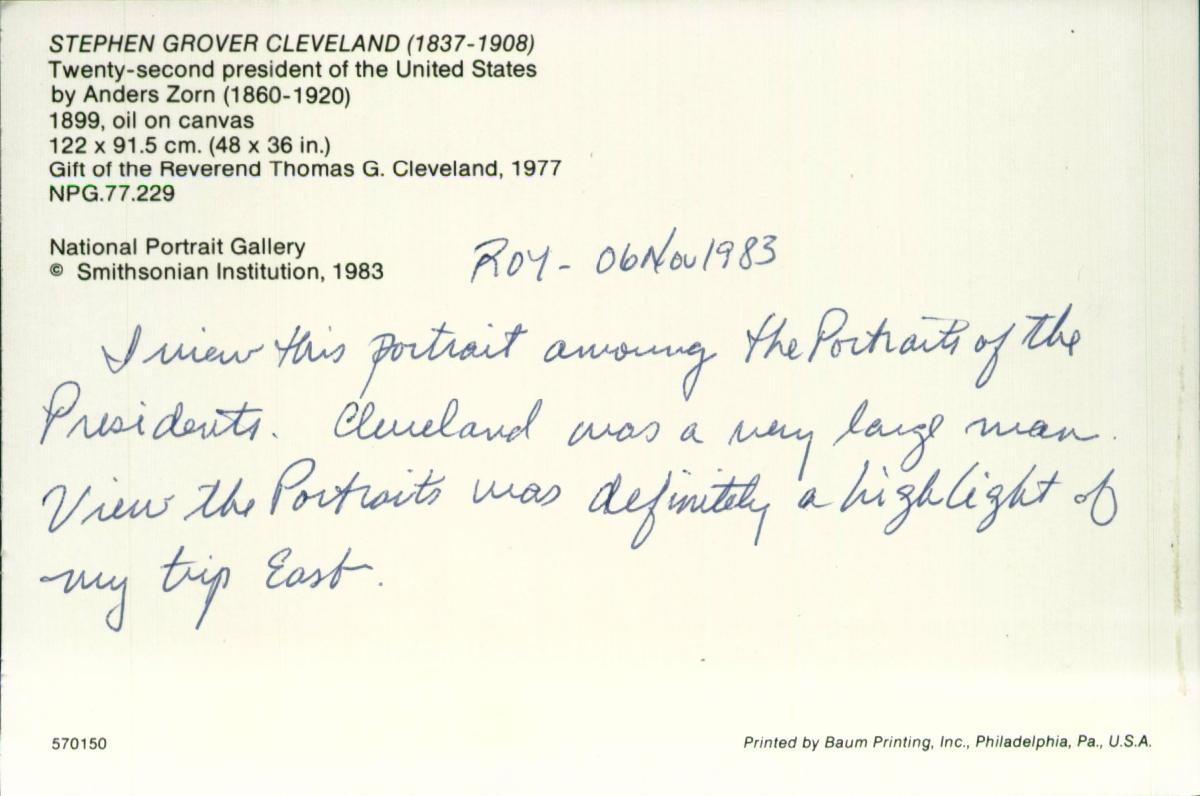 STEPHEN GROVER CLEVELAND (1837-1908)
Twenty-second president of the United States
by Anders Zorn (1860-1920)
1899, oil on canvas
122 x 91.5 cm. (48 x 36 in.)
Gift of the Reverend Thomas G. Cleveland, 1977
NPG.77.229
National Portrait Gallery
© Smithsonian Institution, 1983
ROY - 06 Nov 1983
I view this portrait amoung the Portraits of the
Presidents. Cleveland was a very large man.
View the Portraits was definitely a highlight of
my trip East.
570150
Printed by Baum Printing, Inc., Philadelphia, Pa., U.S.A.